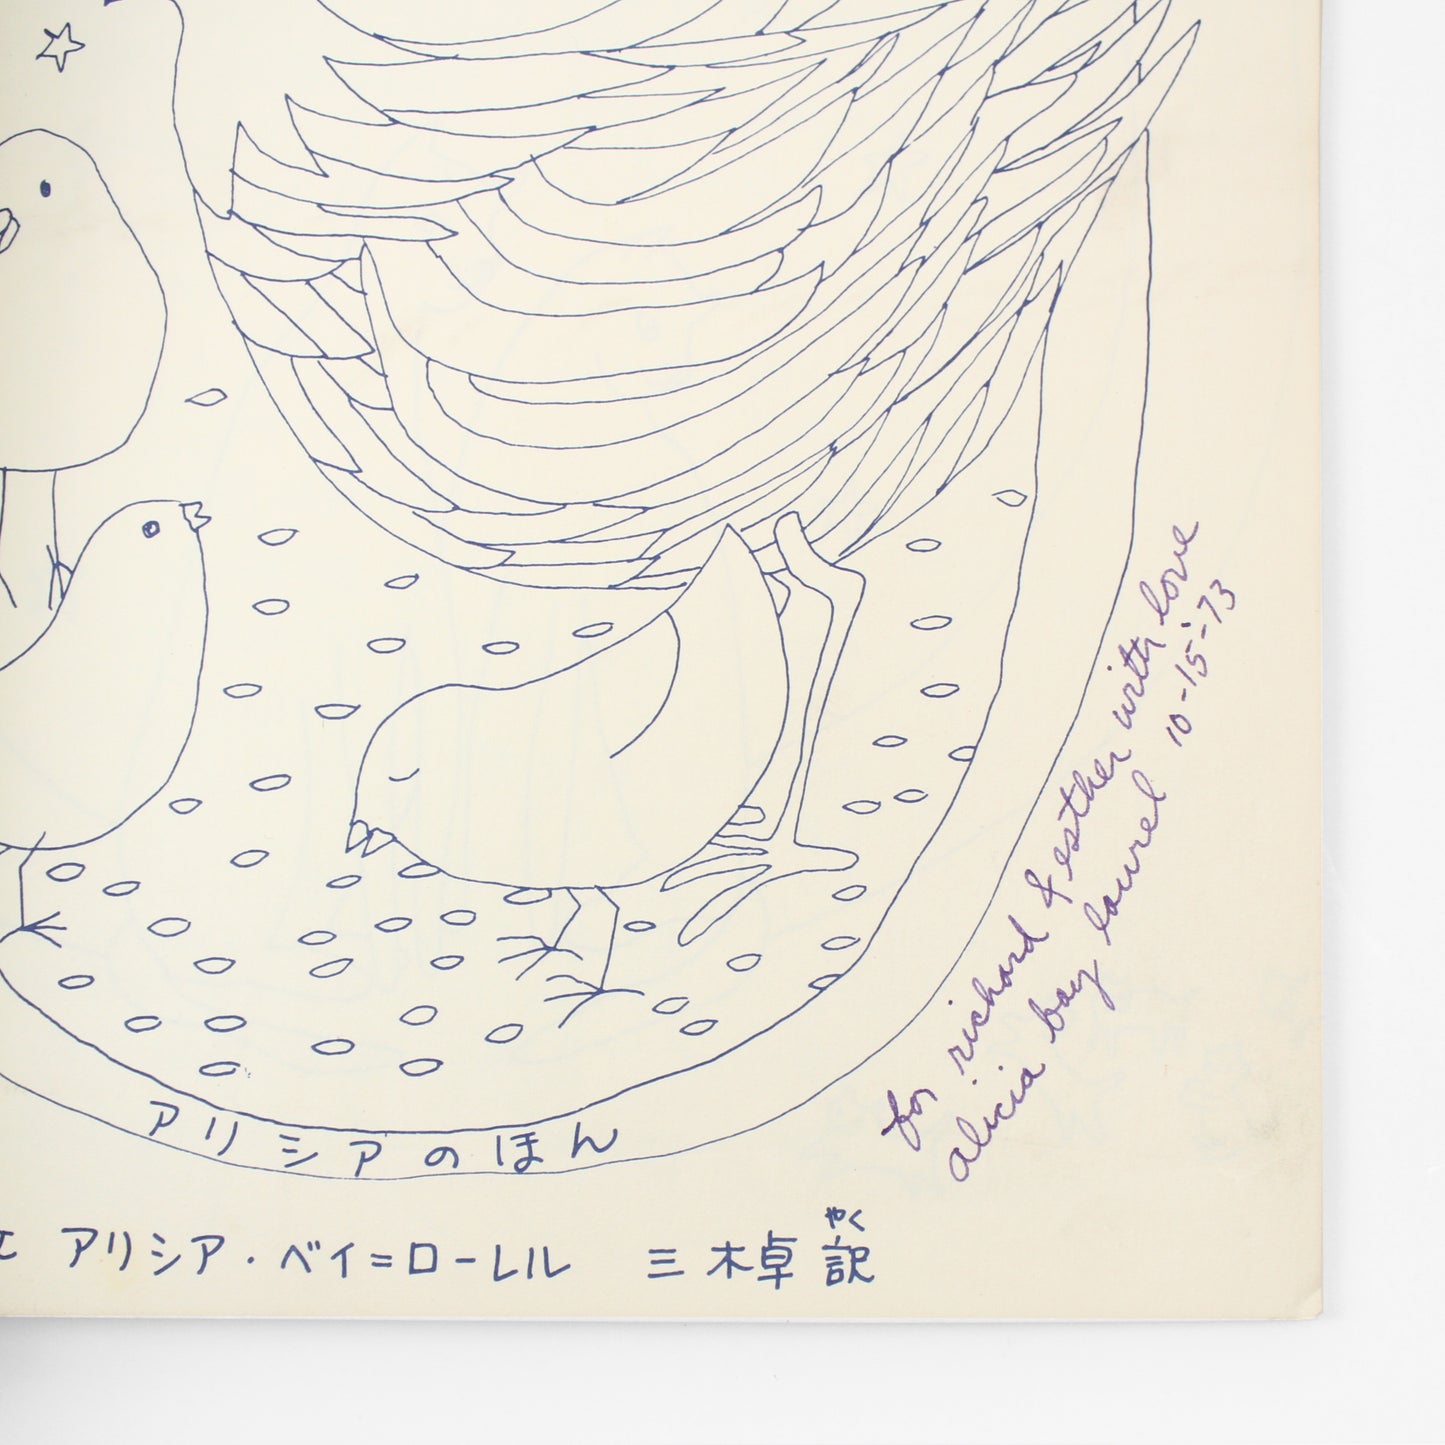 アリシアのほん
アリシア・ベイ=ローレル 三木卓 訳
やく
for richard & esther with love
alicia bay laurel 10-15-73